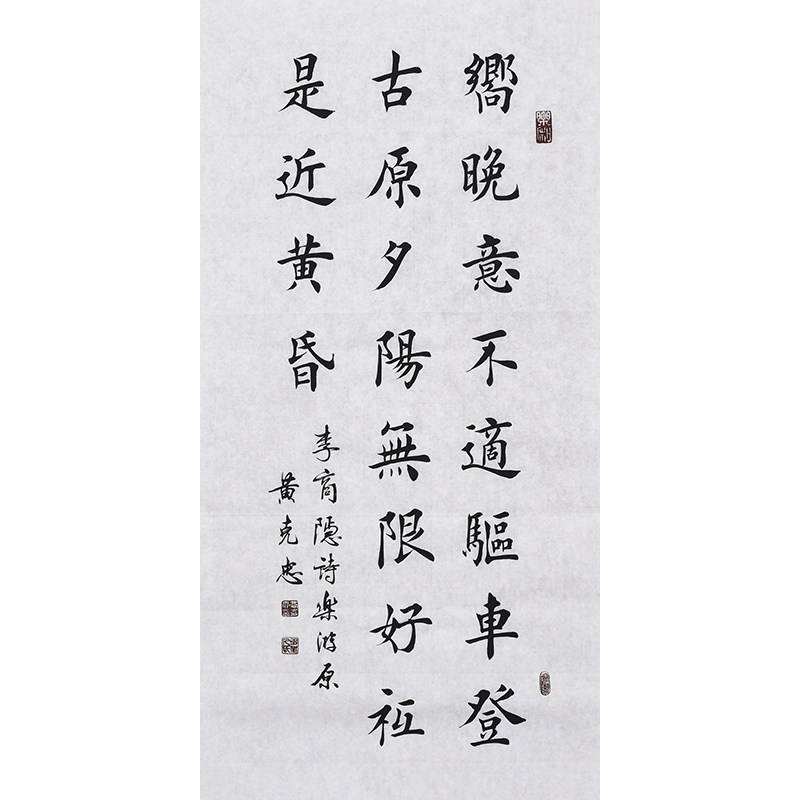 嚮晚意不適驅車登
古原夕陽無限好祇
是近黄昏
李商隐詩樂游原
黄克忠